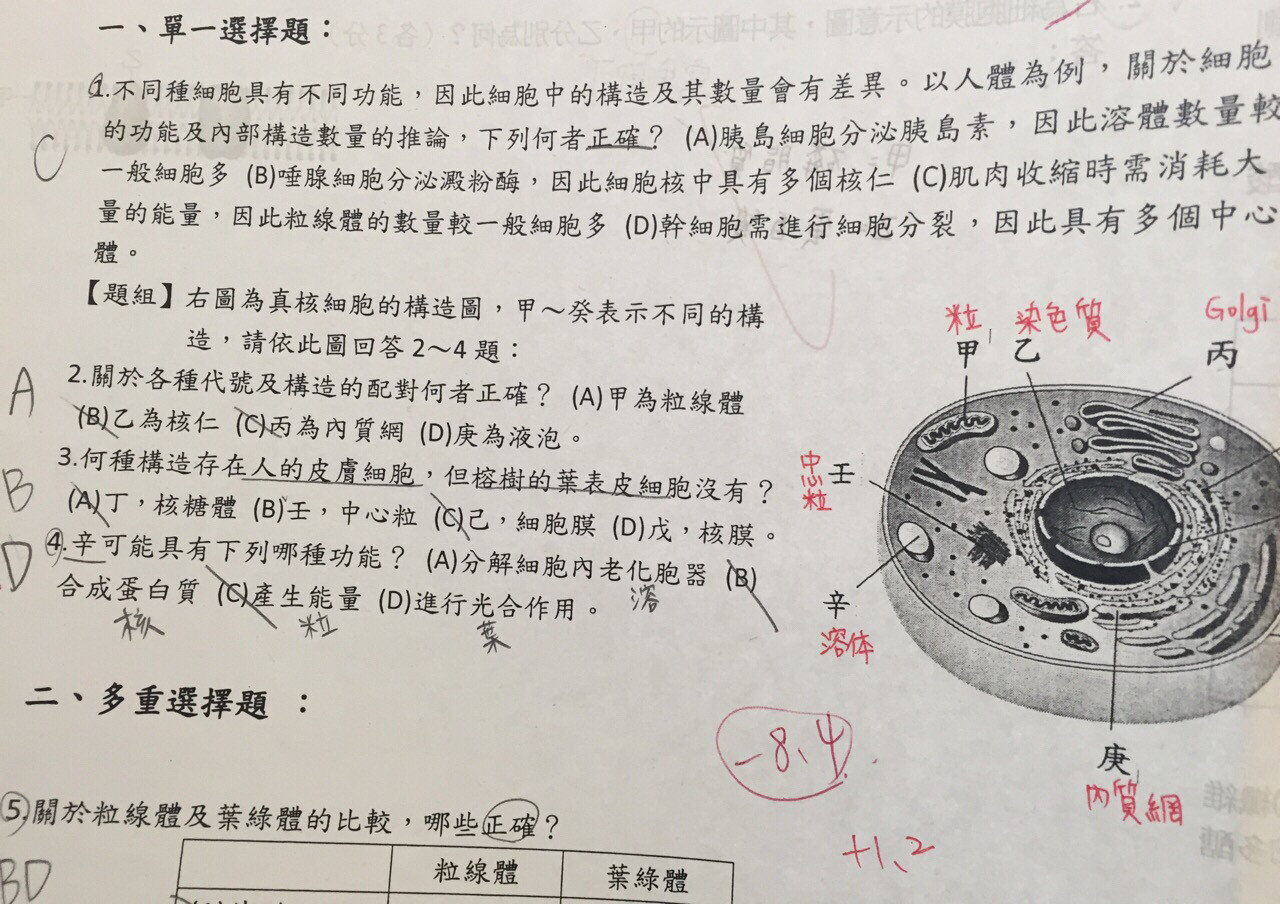 一、單一選擇題：
1.不同種細胞具有不同功能，因此細胞中的構造及其數量會有差異。以人體為例，關於細胞
的功能及內部構造數量的推論，下列何者正確？ (A)胰島細胞分泌胰島素，因此溶體數量較
C
一般細胞多 (B)唾腺細胞分泌澱粉酶，因此細胞核中具有多個核仁 (C)肌肉收縮時需消耗大
量的能量，因此粒線體的數量較一般細胞多 (D)幹細胞需進行細胞分裂，因此具有多個中心
體。
【題組】右圖為真核細胞的構造圖，甲～癸表示不同的構
造，請依此圖回答2～4題：
A
2.關於各種代號及構造的配對何者正確？ (A)甲為粒線體
(B)乙為核仁 (C)丙為內質網 (D)庚為液泡。
B
3.何種構造存在人的皮膚細胞，但榕樹的葉表皮細胞沒有？
(A)丁，核糖體 (B)壬，中心粒 (C)己，細胞膜 (D)戊，核膜。
D
4.辛可能具有下列哪種功能？ (A)分解細胞內老化胞器 (B)
合成蛋白質 (C)產生能量 (D)進行光合作用。
溶
核 粒 葉
粒 染色質 Golgi
甲 乙 丙
中心粒
壬
辛
溶体
庚
內質網
二、多重選擇題 ：
-8.4
+1.2
5.關於粒線體及葉綠體的比較，哪些正確？
BD
粒線體 葉綠體